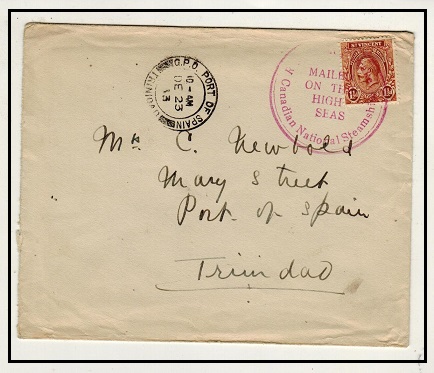 ST VINCENT
1½d
MAILED
ON THE
HIGH
SEAS
Canadian National Steamship
G.P.O. PORT OF SPAIN
TRINIDAD
10 - AM
DE 23
Mr C. Newbold
Mary Street
Port of Spain
Trinidad